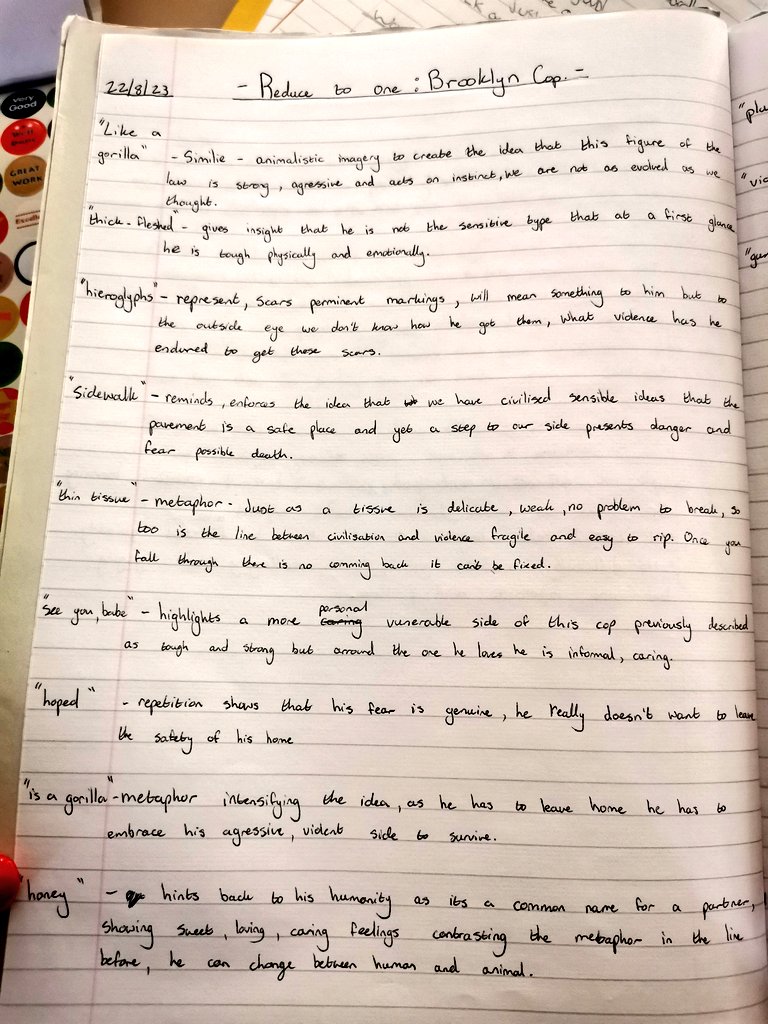 22/8/23
- Reduce to one : Brooklyn Cop. -
"Like a
gorilla" - Similie - animalistic imagery to create the idea that this figure of the
law is strong, agressive and acts on instinct, we are not as evolved as we
thought.
"thick-fleshed" - gives insight that he is not the sensitive type that at a first glance
he is tough physically and emotionally.
"hieroglyphs" - represent, scars perminent markings, will mean something to him but to
the outside eye we don't know how he got them, what violence has he
endured to get these scars.
"Sidewalk" - reminds, enforces the idea that we have civilised sensible ideas that the
pavement is a safe place and yet a step to our side presents danger and
fear possible death.
"thin tissue" - metaphor - Just as a tissue is delicate, weak, no problem to break, so
too is the line between civilisation and violence fragile and easy to rip. Once you
fall through there is no comming back it can't be fixed.
"See you, babe" - highlights a more personal vunerable side of this cop previously described
as tough and strong but arround the one he loves he is informal, caring.
"hoped" - repetition shows that his fear is genuine, he really doesn't want to leave
the safety of his home
"is a gorilla" - metaphor intensifying the idea, as he has to leave home he has to
embrace his agressive, violent side to survive.
"honey" - hints back to his humanity as its a common name for a partner,
showing sweet, loving, caring feelings contrasting the metaphor in the line
before, he can change between human and animal.
VERY
GOOD
GREAT
WORK
"plu
"vio
"gun